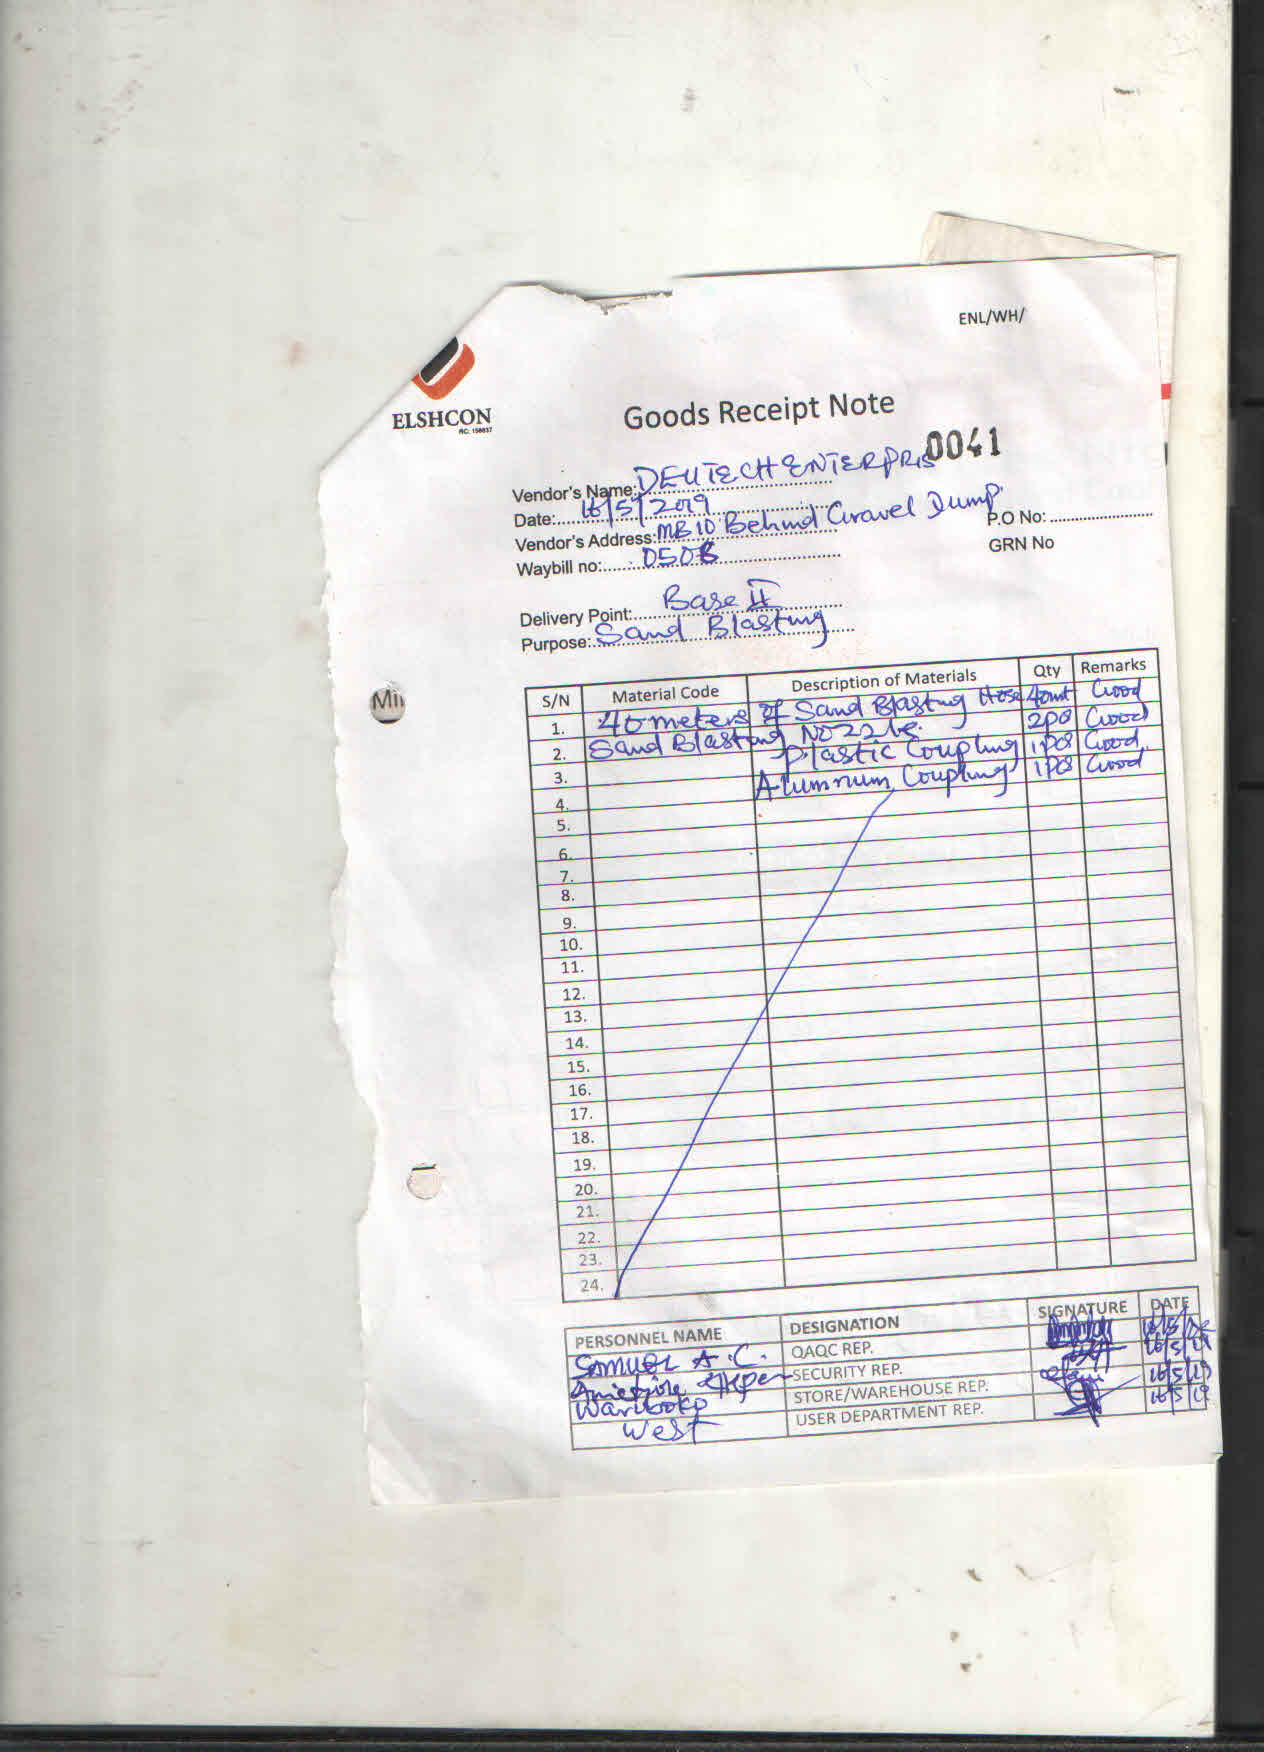 ENL/WH/
ELSHCON
RC: 156837
Goods Receipt Note
0041
Vendor's Name: DEUTECH ENTERPRIS
Date: 16/5/2019
Vendor's Address: MB10 Behind Gravel Dump
P.O No:
Waybill no: 0508
GRN No
Delivery Point: Base II
Purpose: Sand Blasting
Mii
S/N Material Code Description of Materials Qty Remarks
1. 40 meters of Sand Blasting Hose 40mt Good
2. Sand Blasting Nozzle 2pcs Good
3. Plastic Coupling 1pcs Good
4. Aluminum Coupling 1pcs Good
5.
6.
7.
8.
9.
10.
11.
12.
13.
14.
15.
16.
17.
18.
19.
20.
21.
22.
23.
24.
PERSONNEL NAME DESIGNATION SIGNATURE DATE
SAMUEL A.C. QAQC REP.
SECURITY REP. 16/5/19
Wariboko STORE/WAREHOUSE REP. 16/5/19
West USER DEPARTMENT REP. 16/5/19